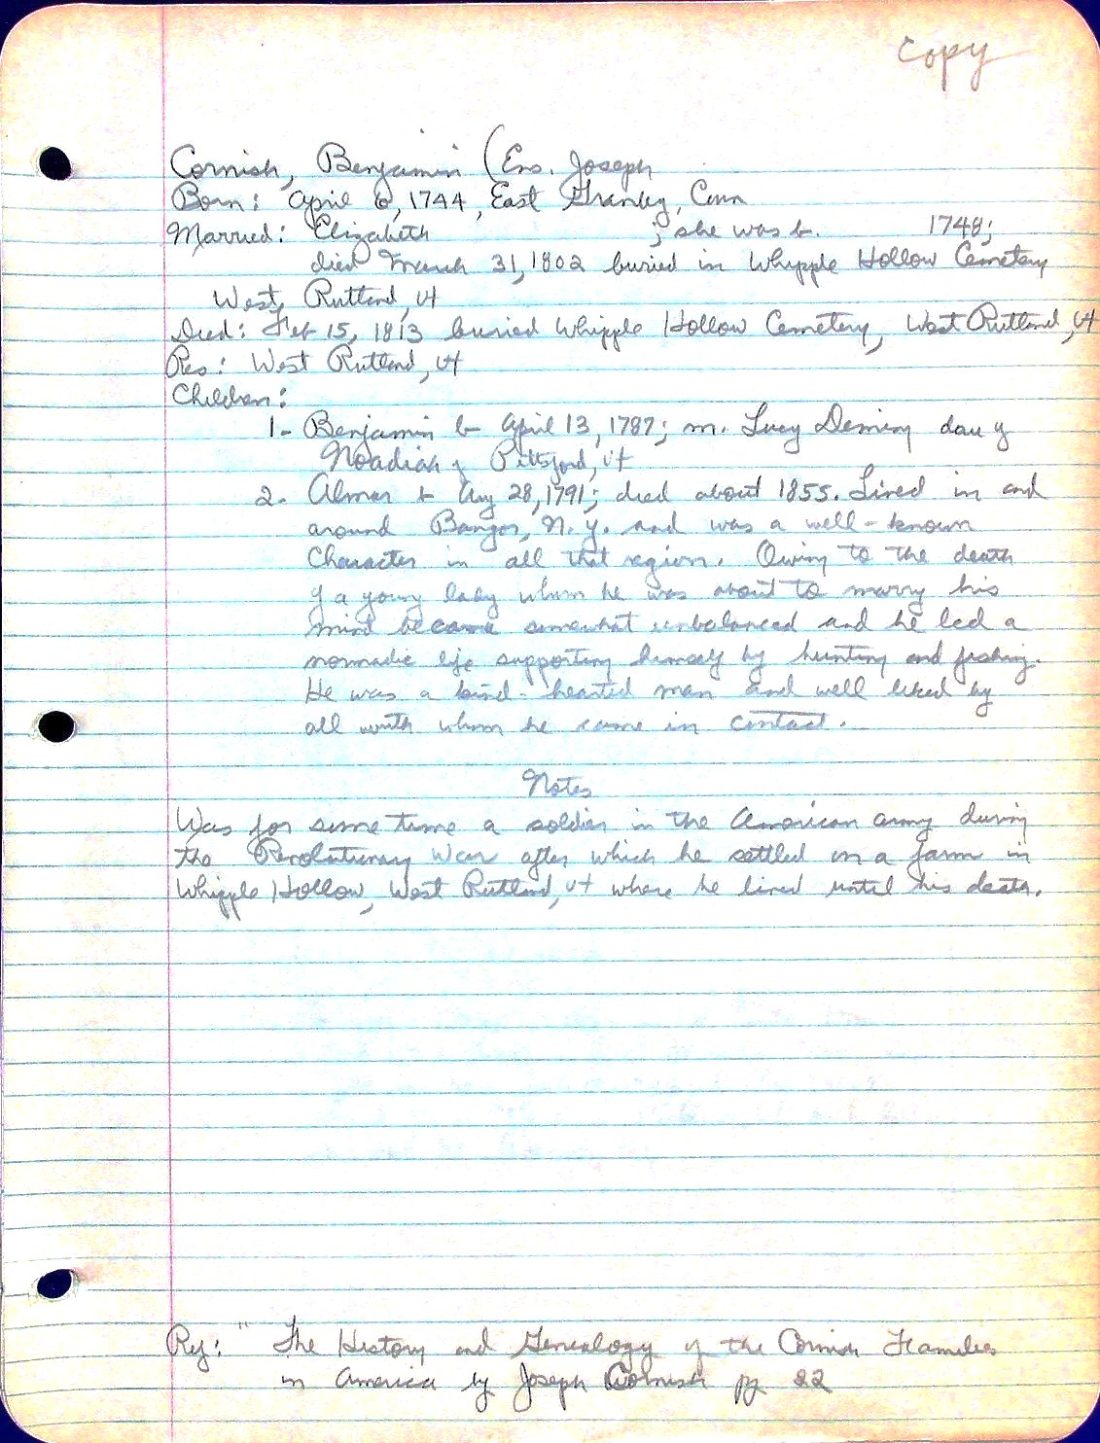 Copy
Cornish, Benjamin (Ens. Joseph
Born: April 6, 1744, East Granby, Conn
Married: Elizabeth ; she was b. 1748;
died March 31, 1802 buried in Whipple Hollow Cemetery
West Rutland, Vt
Died: Feb 15, 1813 buried Whipple Hollow Cemetery, West Rutland, Vt
Res: West Rutland, Vt
Children:
1- Benjamin b April 13, 1787; m. Lucy Deming dau of
Noadiah of Pittsford, Vt
2. Almar b Aug 28, 1791; died about 1855. Lived in and
around Bangor, N.Y. and was a well-known
Character in all that region. Owing to the death
of a young lady whom he was about to marry his
mind became somewhat unbalanced and he led a
nomadic life supporting himself by hunting and fishing.
He was a kind-hearted man and well liked by
all with whom he came in contact.
Notes
Was for some time a soldier in the American army during
the Revolutionary War after which he settled on a farm in
Whipple Hollow, West Rutland, Vt where he lived until his death.
Ref: " The History and Genealogy of the Cornish Families
in America by Joseph Cornish pg 22